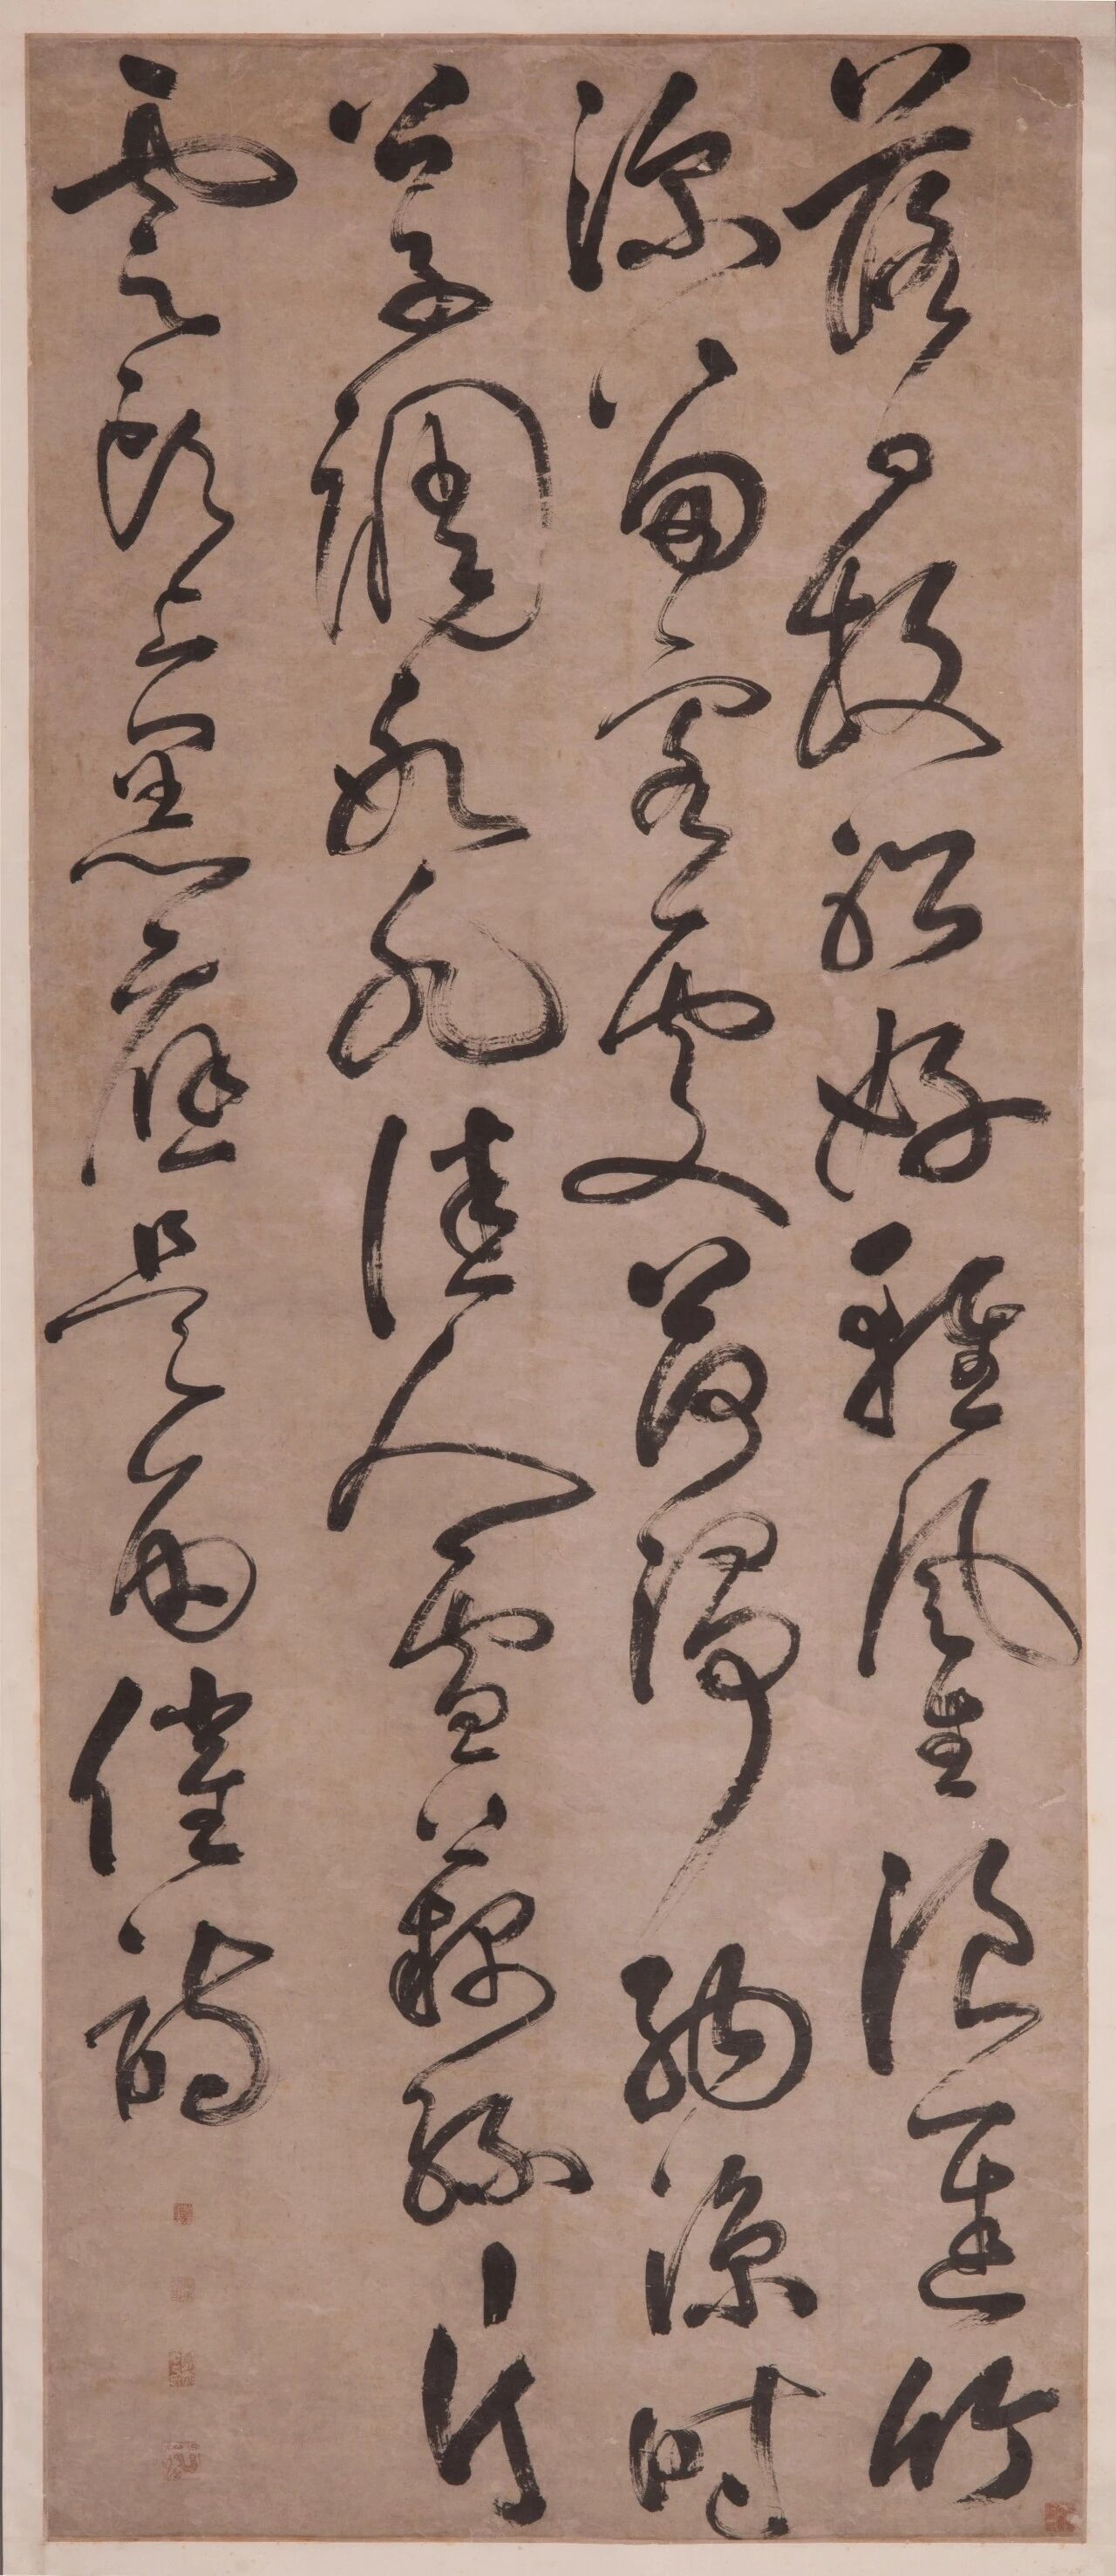 落日放船好輕風生浪遲竹
深留客處荷淨納涼時
公子調氷水佳人雪藕絲片
雲頭上黑應是雨催詩